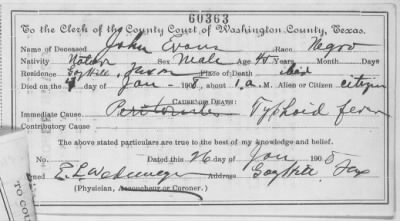 60363
To the Clerk of the County Court of Washington County, Texas.
Name of Deceased John Evans Race Negro
Nativity Native Sex Male Age 45 Years Month Days
Residence Gay Hill, Texas Place of Death
Died on the of Jan - 1908, about 1 a. M. Alien or Citizen citizen
CAUSE OF DEATH:
Immediate Cause Typhoid fever
Contributory Cause
The above stated particulars are true to the best of my knowledge and belief.
Dated this 26 Jan 1908
Address Gay Hill Tex
(Physician, Accoucheur or Coroner.)
TO COU